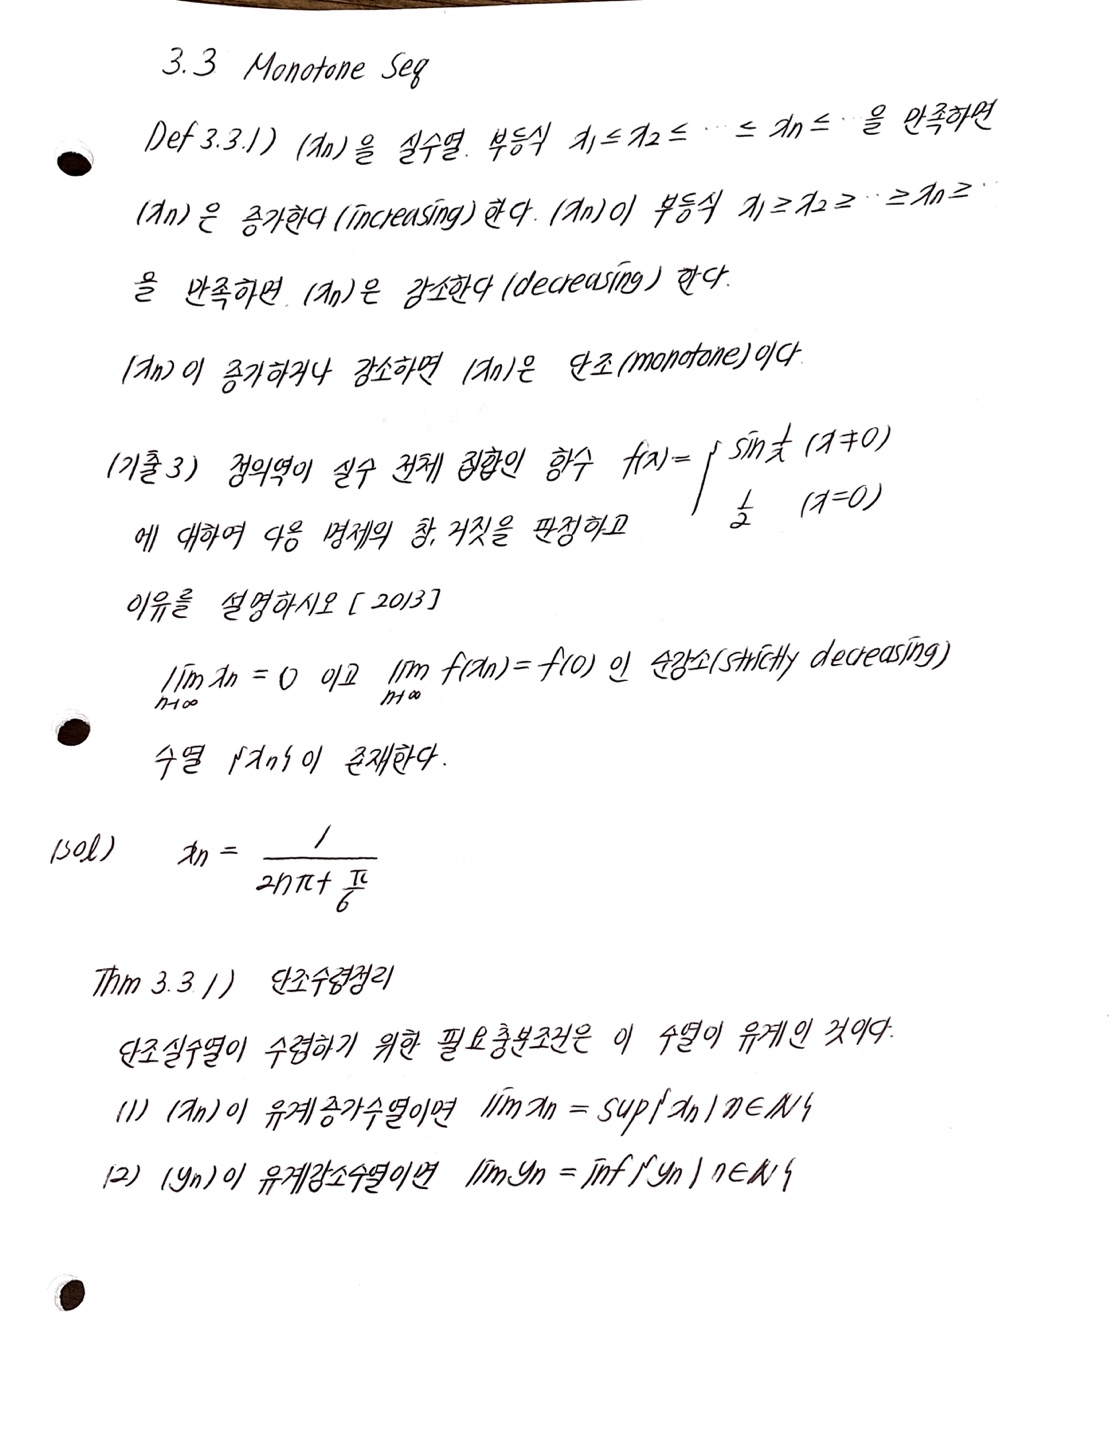 3.3 Monotone Seq
Def 3.3.1) (xn)을 실수열. 부등식 x1 ≤ x2 ≤ ⋯ ≤ xn ≤ ⋯ 을 만족하면
(xn)은 증가한다(increasing)한다. (xn)이 부등식 x1 ≥ x2 ≥ ⋯ ≥ xn ≥ ⋯
을 만족하면 (xn)은 감소한다(decreasing) 한다.
(xn)이 증가하거나 감소하면 (xn)은 단조(monotone)이다
(기출3) 정의역이 실수 전체 집합인 함수 f(x) = { sin 1/x (x≠0)
1/2 (x=0)
에 대하여 다음 명제의 참, 거짓을 판정하고
이유를 설명하시오 [2013]
lim n→∞ xn = 0 이고 lim n→∞ f(xn) = f(0) 인 순감소(strictly decreasing)
수열 {xn}이 존재한다.
(sol) xn = 1 / (2nπ + π/6)
Thm 3.3.1) 단조수렴정리
단조실수열이 수렴하기 위한 필요충분조건은 이 수열이 유계인 것이다.
(1) (xn)이 유계증가수열이면 lim xn = sup{xn | n∈ℕ}
(2) (yn)이 유계감소수열이면 lim yn = inf{yn | n∈ℕ}